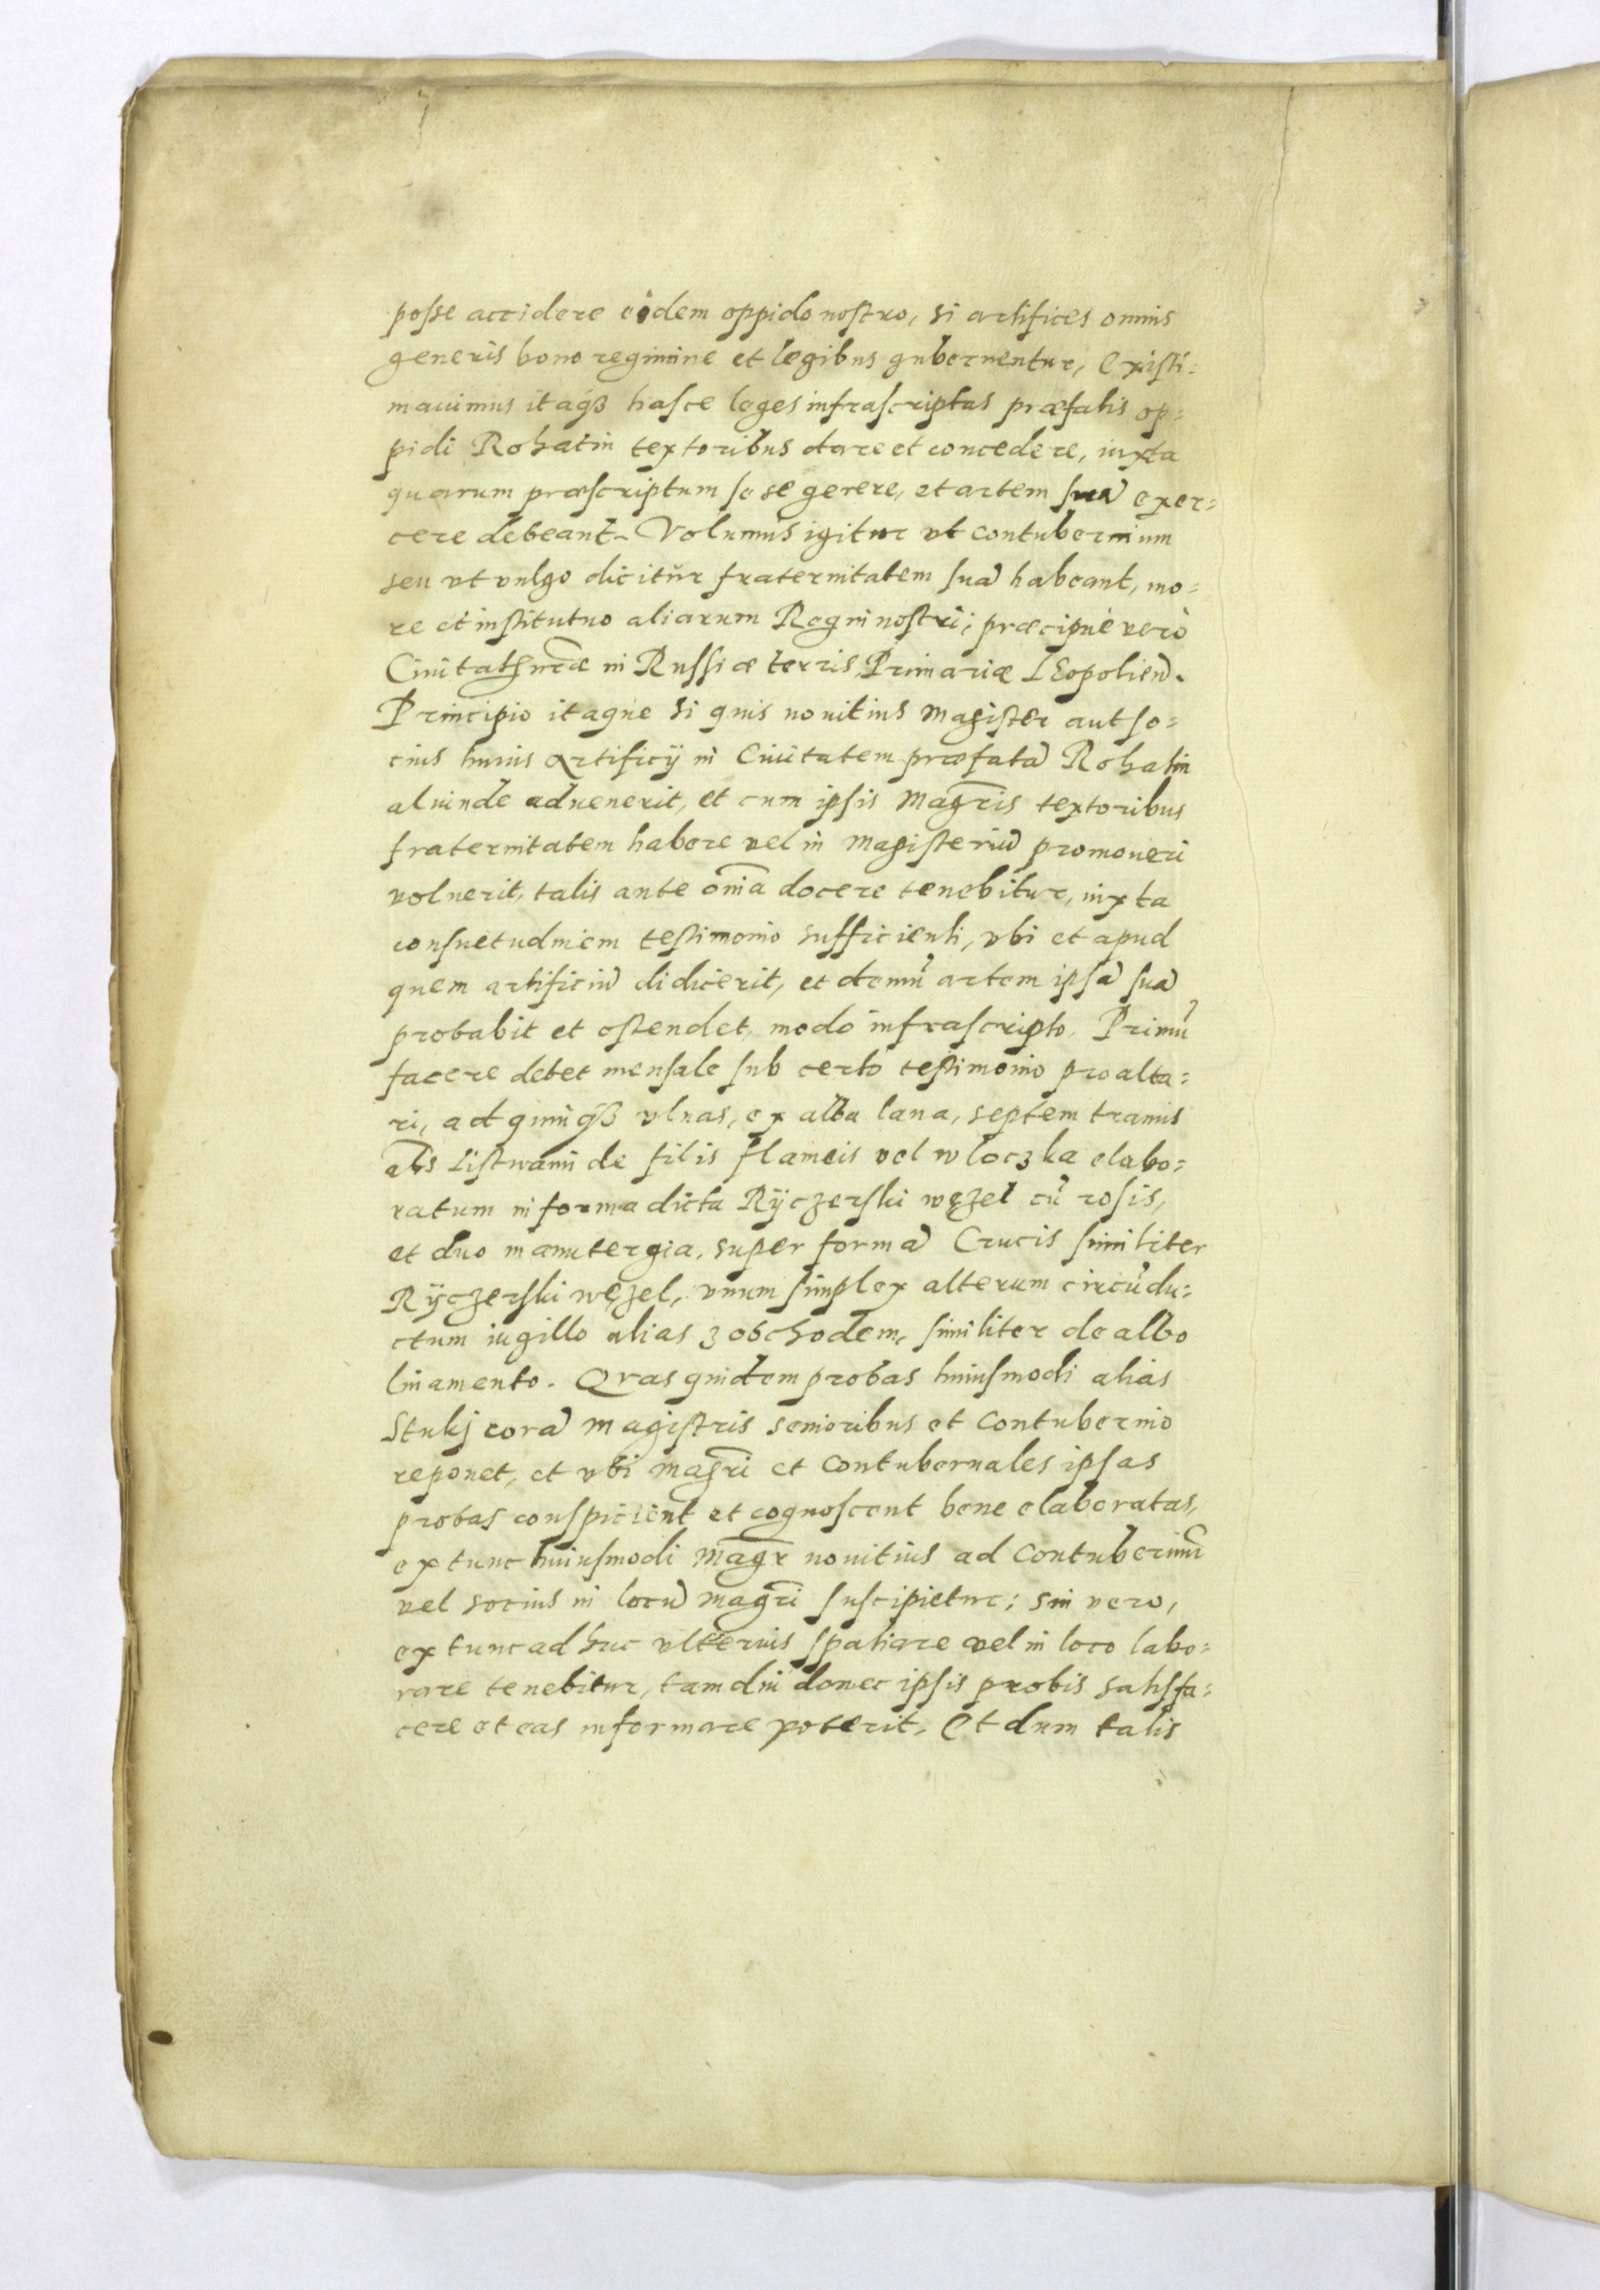 posse accidere eidem oppido nostro, si artifices omnis
generis bono regimine et legibus gubernentur, existi=
mauimus itaqȝ hasce leges infrascriptas præfatis op=
pidi Rohatin textoribus dare et concedere, iuxta
quarum præscriptum se se gerere, et artem suã exer=
cere debeant. Volumus igitur vt contubernium
seu vt vulgo dicitŭr fraternitatem suã habeant, mo=
re et institutuo aliarum Regni nostri; præcipuè verò
Ciuitatũ nr̃æ in Russiæ terris Primariæ LEopolien̄.
Principio itaque si quis nouitius Magister aut so=
cius huius Artificij in Ciuitatem præfatã Rohatin
aluinde aduenerit, et cum ipsis Magr̃is textoribus
fraternitatem habere vel in Magisteriũ promoueri
voluerit, talis ante om̃ia docere tenebitur, iuxta
consuetudinem testimonio sufficienti, vbi et apud
quem artificiũ didicerit, et demũ artem ipsã suã
probabit et ostendet modo infrascripto. Primũ
facere debet mensale sub certo testimonio pro alta=
ri, ad quinqȝ vlnas, ex alba lana, septem tramis
al̃s Listwami de filis flameis vel wloczka elabo=
ratum in forma dicta Rÿczerski węzel cũ rosis,
et duo manutergia, super formã Crucis similiter
Rÿczerski węzel, vnum simplex alterum circũdu=
ctum iugillo alias z obchodem, similiter de albo
linamento. Qvas quidem probas huiusmodi alias
Stukj corã Magistris senioribus et contubernio
reponet, et vbi Magr̃i et contubernales ipsas
probas conspicient et cognoscent bene elaboratas,
extunc huiusmodi Magr̃ nouitius ad contuberniũ
vel socius in locũ Magr̃i suscipietur; sin vero,
extunc adhuc vlterius spatiare vel in loco labo=
rare tenebitur, tamdiu donec ipsis probis satisfa=
cere et eas informare poterit, Et dum talis